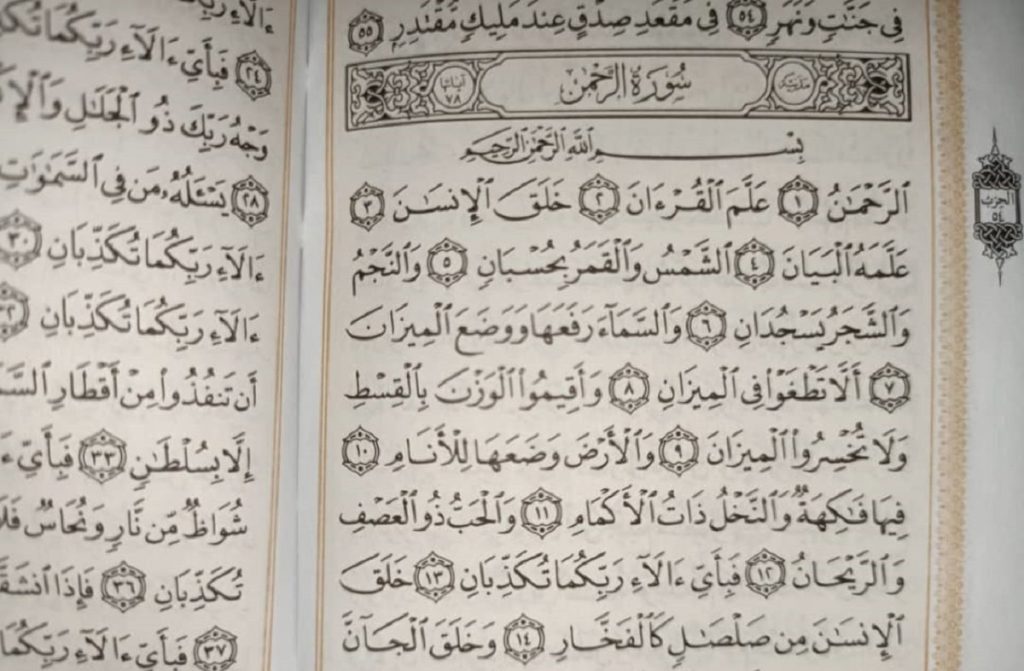 فِى جَنَّٰتٍ وَنَهَرٍ ٥٤ فِى مَقْعَدِ صِدْقٍ عِندَ مَلِيكٍ مُّقْتَدِرٍ ٥٥
مدنية سُورَةُ الرَّحْمَٰن آياتها ٧٨
بِسْمِ ٱللَّهِ ٱلرَّحْمَٰنِ ٱلرَّحِيمِ
ٱلرَّحْمَٰنُ ١ عَلَّمَ ٱلْقُرْءَانَ ٢ خَلَقَ ٱلْإِنسَٰنَ ٣
عَلَّمَهُ ٱلْبَيَانَ ٤ ٱلشَّمْسُ وَٱلْقَمَرُ بِحُسْبَانٍ ٥ وَٱلنَّجْمُ
وَٱلشَّجَرُ يَسْجُدَانِ ٦ وَٱلسَّمَآءَ رَفَعَهَا وَوَضَعَ ٱلْمِيزَانَ
٧ أَلَّا تَطْغَوْا۟ فِى ٱلْمِيزَانِ ٨ وَأَقِيمُوا۟ ٱلْوَزْنَ بِٱلْقِسْطِ
وَلَا تُخْسِرُوا۟ ٱلْمِيزَانَ ٩ وَٱلْأَرْضَ وَضَعَهَا لِلْأَنَامِ ١٠
فِيهَا فَٰكِهَةٌ وَٱلنَّخْلُ ذَاتُ ٱلْأَكْمَامِ ١١ وَٱلْحَبُّ ذُو ٱلْعَصْفِ
وَٱلرَّيْحَانُ ١٢ فَبِأَىِّ ءَالَآءِ رَبِّكُمَا تُكَذِّبَانِ ١٣ خَلَقَ
ٱلْإِنسَٰنَ مِن صَلْصَٰلٍ كَٱلْفَخَّارِ ١٤ وَخَلَقَ ٱلْجَآنَّ
الحزب
٥٤
ءَالَآءِ
٢٤ فَبِأَىِّ ءَالَآءِ رَبِّكُمَا
وَجْهُ رَبِّكَ ذُو ٱلْجَلَٰلِ
٢٨ يَسْـَٔلُهُۥ مَن فِى ٱلسَّمَٰوَٰتِ
ءَالَآءِ رَبِّكُمَا تُكَذِّبَانِ ٣٠
ءَالَآءِ رَبِّكُمَا تُكَذِّبَانِ ٣٢
أَن تَنفُذُوا۟ مِنْ أَقْطَارِ
إِلَّا بِسُلْطَٰنٍ ٣٣ فَبِأَىِّ
شُوَاظٌ مِّن نَّارٍ وَنُحَاسٌ
تُكَذِّبَانِ ٣٦ فَإِذَا
٣٧ فَبِأَىِّ ءَالَآءِ رَبِّكُمَا